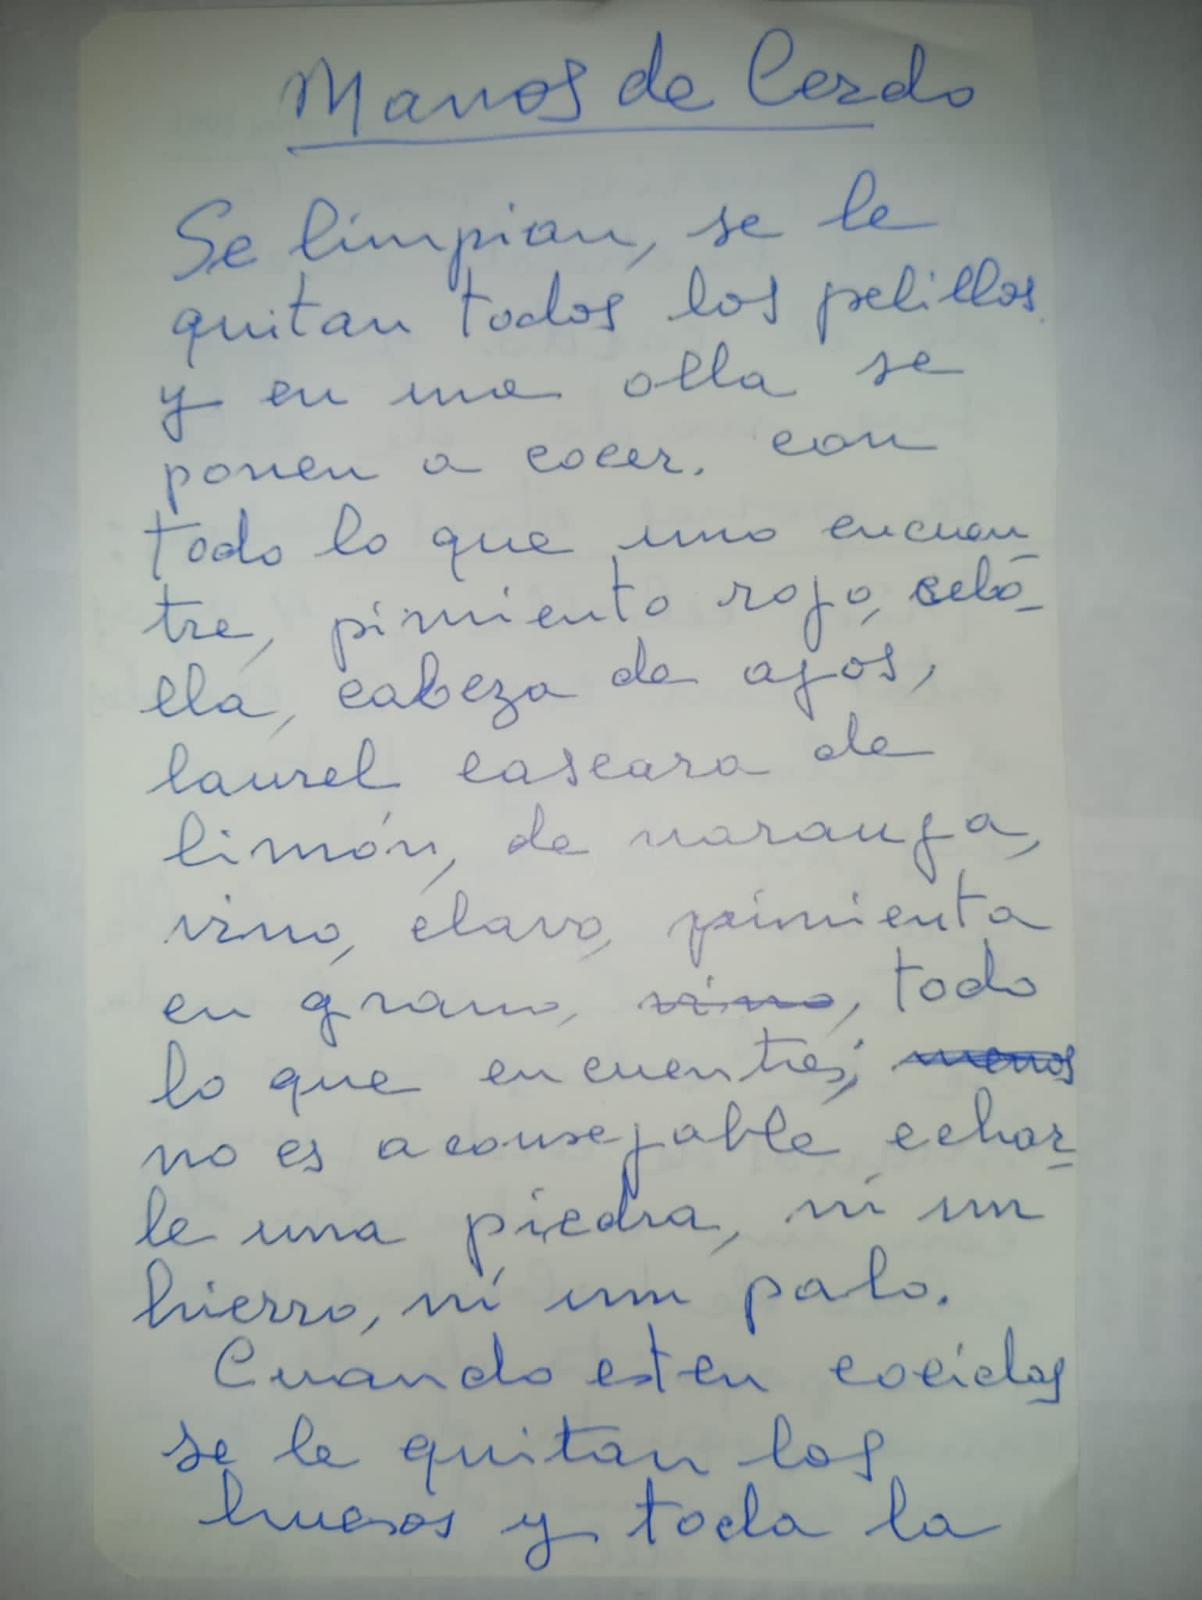 Manos de Cerdo
Se limpian, se le
quitan todos los pelillos
y en una olla se
ponen a cocer. con
todo lo que uno encuen
tre, pimiento rojo, cebo-
lla, cabeza de ajos,
laurel cascara de
limón, de naranja,
vino, clavo, pimienta
en grano, vino, todo
lo que encuentres; menos
no es aconsejable echar-
le una piedra, ni un
hierro, ni un palo.
Cuando esten cocidas
se le quitan los
huesos y toda la